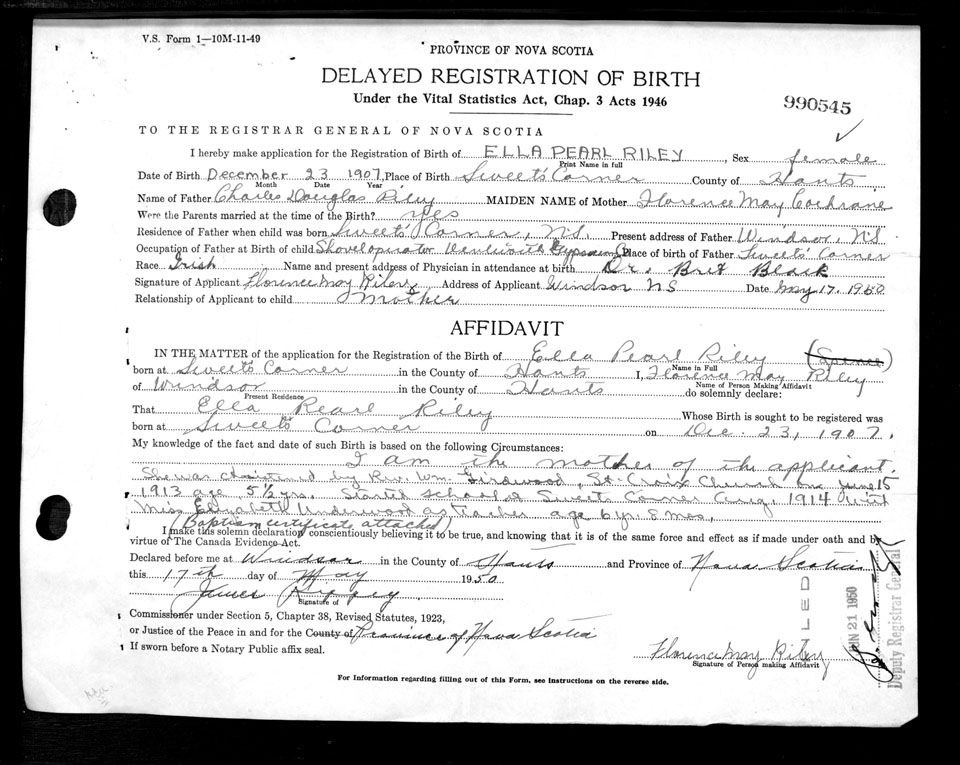 V.S. Form 1—10M-11-49
PROVINCE OF NOVA SCOTIA
DELAYED REGISTRATION OF BIRTH
Under the Vital Statistics Act, Chap. 3 Acts 1946
990545
TO THE REGISTRAR GENERAL OF NOVA SCOTIA
I hereby make application for the Registration of Birth of ELLA PEARL RILEY, Sex female
Print Name in full
Date of Birth December 23 1907, Place of Birth Sweet's Corner County of Hants
Month Date Year
Name of Father Charles Douglas Riley MAIDEN NAME of Mother Florence May Cochrane
Were the Parents married at the time of the Birth? yes
Residence of Father when child was born Sweet's Corner, N.S. Present address of Father Windsor, N.S
Occupation of Father at Birth of child Shovel oprator Gypsum Co Place of birth of Father Sweet's Corner
Race Irish Name and present address of Physician in attendance at birth Dr. Bret Black
Signature of Applicant Florence May Riley Address of Applicant Windsor NS Date May 17. 1950
Relationship of Applicant to child Mother
AFFIDAVIT
IN THE MATTER of the application for the Registration of the Birth of Ella Pearl Riley
Name in Full
born at Sweets Corner in the County of Hants I, Florence May Riley
Name of Person Making Affidavit
of Windsor in the County of Hants do solemnly declare:
Present Residence
That Ella Pearl Riley Whose Birth is sought to be registered was
born at Sweets Corner on Dec. 23, 1907.
My knowledge of the fact and date of such Birth is based on the following Circumstances:
I am the mother of the applicant.
She was christened by Rev. Wm. Girdwood, St. Croix Church June 15
1913 age 5½ yrs. Started school at Sweets Corner Aug. 1914 with
Miss Elizabeth Underwood as Teacher age 6 yr. 8 mos.
(Baptism certificate attached)
I make this solemn declaration conscientiously believing it to be true, and knowing that it is of the same force and effect as if made under oath and by
virtue of The Canada Evidence Act.
Declared before me at Windsor in the County of Hants and Province of Nova Scotia
this 17th day of May 1950
James
Signature of
Commissioner under Section 5, Chapter 38, Revised Statutes, 1923,
or Justice of the Peace in and for the County of Province of Nova Scotia
If sworn before a Notary Public affix seal.
Florence May Riley
Signature of Person making Affidavit
For Information regarding filling out of this Form, see instructions on the reverse side.
JUN 21 1950
Deputy Registrar General